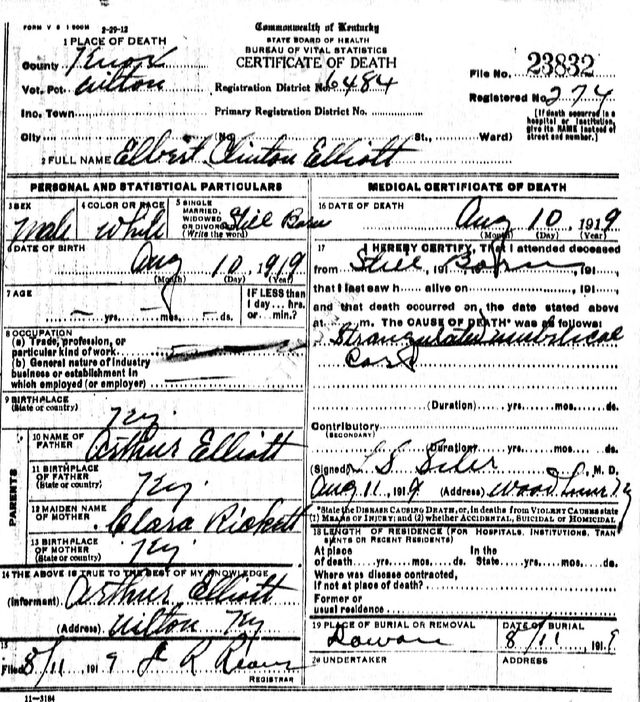 FORM V S 1 500M 2-29-12
Commonwealth of Kentucky
STATE BOARD OF HEALTH
BUREAU OF VITAL STATISTICS
CERTIFICATE OF DEATH
1 PLACE OF DEATH
County Knox
Vot. Pct. Wilton
Registration District No. 6484
File No. 23832
Inc. Town
Primary Registration District No.
Registered No. 274
City (No. St., Ward)
[If death occurred in a hospital or institution, give its NAME instead of street and number.]
2 FULL NAME Elbert Clinton Elliott
PERSONAL AND STATISTICAL PARTICULARS
3 SEX Male
4 COLOR OR RACE White
5 SINGLE MARRIED, WIDOWED OR DIVORCED (Write the word) Still Born
6 DATE OF BIRTH
Aug 10, 1919
(Month) (Day) (Year)
7 AGE
— yrs. — mos. — ds.
IF LESS than 1 day... hrs. or min.?
8 OCCUPATION
(a) Trade, profession, or
particular kind of work
(b) General nature of industry
business or establishment in
which employed (or employer)
9 BIRTHPLACE
(State or country) Ky.
PARENTS
10 NAME OF FATHER Arthur Elliott
11 BIRTHPLACE OF FATHER (State or country) Ky.
12 MAIDEN NAME OF MOTHER Clara Rickett
13 BIRTHPLACE OF MOTHER (State or country) Ky
14 THE ABOVE IS TRUE TO THE BEST OF MY KNOWLEDGE
(Informant) Arthur Elliott
(Address) Wilton Ky
15
Filed 8/11 1919 J R
REGISTRAR
11—3184
MEDICAL CERTIFICATE OF DEATH
16 DATE OF DEATH
Aug 10, 1919
(Month) (Day) (Year)
17 I HEREBY CERTIFY, That I attended deceased
from Still, 191 Born, 191
that I last saw h alive on, 191
and that death occurred on the date stated above
at m. The CAUSE OF DEATH* was as follows:
Strangulated umbilical
Cord
(Duration) yrs. mos. ds.
Contributory
(SECONDARY)
(Duration) yrs. mos. ds.
(Signed) S Siler, M. D.
Aug 11, 1919 (Address) Woodbine Ky
*State the DISEASE CAUSING DEATH, or, in deaths from VIOLENT CAUSES state
(1) MEANS OF INJURY; and (2) whether ACCIDENTAL, SUICIDAL or HOMICIDAL
18 LENGTH OF RESIDENCE (FOR HOSPITALS, INSTITUTIONS, TRANSIENTS OR RECENT RESIDENTS)
At place of death yrs. mos. ds. In the State yrs. mos. ds.
Where was disease contracted,
if not at place of death?
Former or
usual residence
19 PLACE OF BURIAL OR REMOVAL
DATE OF BURIAL
8/11 1919
20 UNDERTAKER
ADDRESS